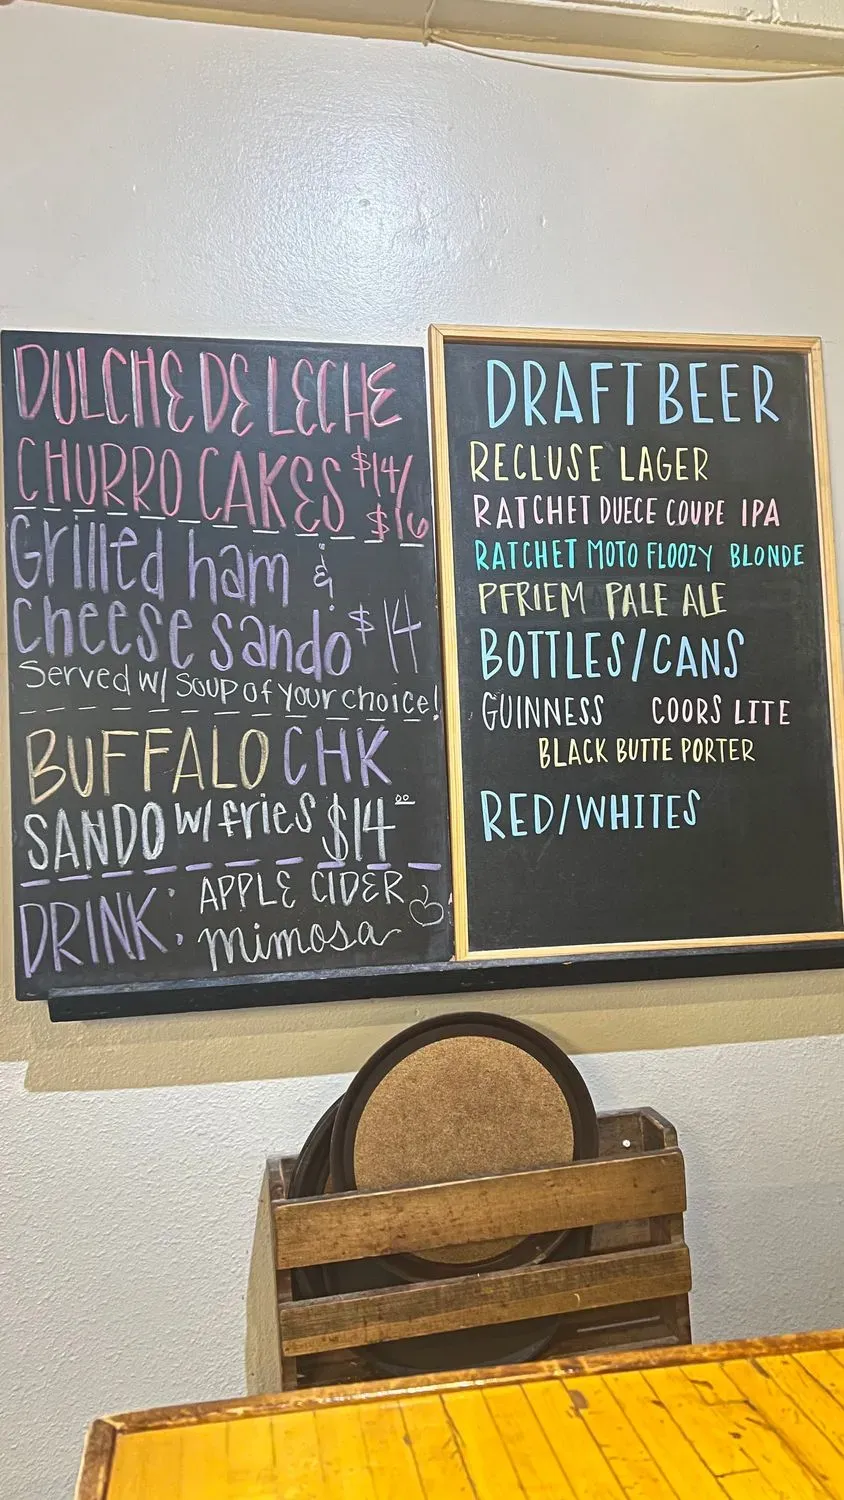 DULCHE DE LECHE
CHURRO CAKES $14/
$16
Grilled ham &
cheese sando $14
Served w/ soup of your choice!
BUFFALO CHK
SANDO w/ fries $14.00
DRINK: APPLE CIDER
mimosa
DRAFT BEER
RECLUSE LAGER
RATCHET DUECE COUPE IPA
RATCHET MOTO FLOOZY BLONDE
PFRIEM PALE ALE
BOTTLES/CANS
GUINNESS COORS LITE
BLACK BUTTE PORTER
RED/WHITES